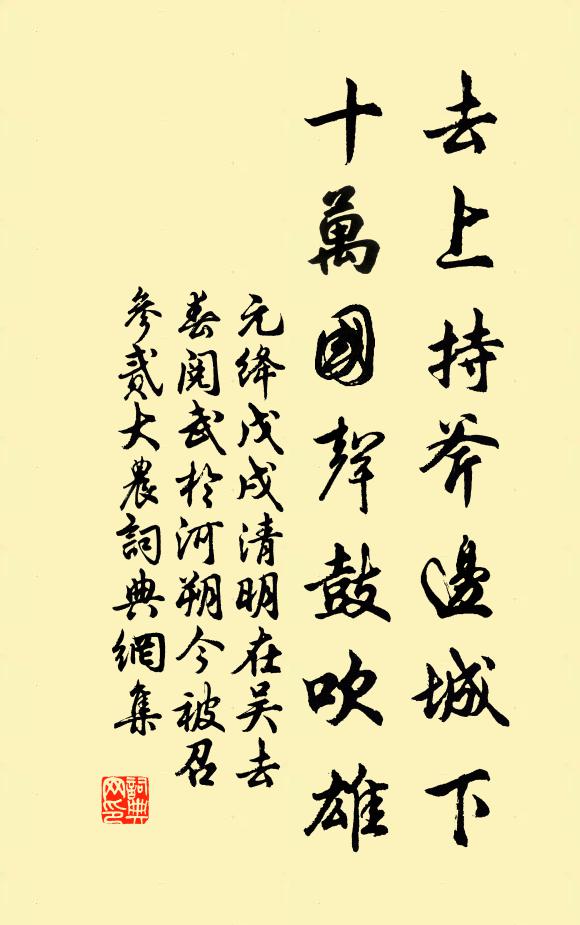 去上持斧邊城下
十萬國聲鼓吹雄
元絳戊戌清明在吴去
春閱武於河朔今被召
參貳大農詞典網集
詞典
网印